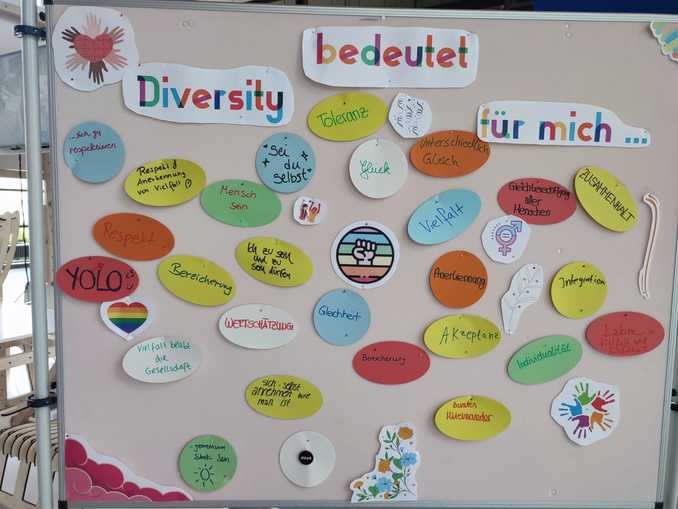 bedeutet
Diversity
für mich ...
Toleranz
...sich zu
respektieren
Sei du
selbst
Unterschiedlich
Gleich
Respekt &
Anerkennung
von Vielfalt
Glück
Mensch
sein
Gleichberechtigung
aller
Menschen
ZUSAMMENHALT
Vielfalt
Respekt
Ich zu sein
und zu
sein dürfen
YOLO
Bereicherung
Anerkennung
Integration
WERTSCHÄTZUNG
Gleichheit
AKzeptanz
Vielfalt belebt
die
Gesellschaft
Bereicherung
Individualität
sich selbst
annehmen wie
man ist
buntes
Miteinander
...gemeinsam
Stark Sein